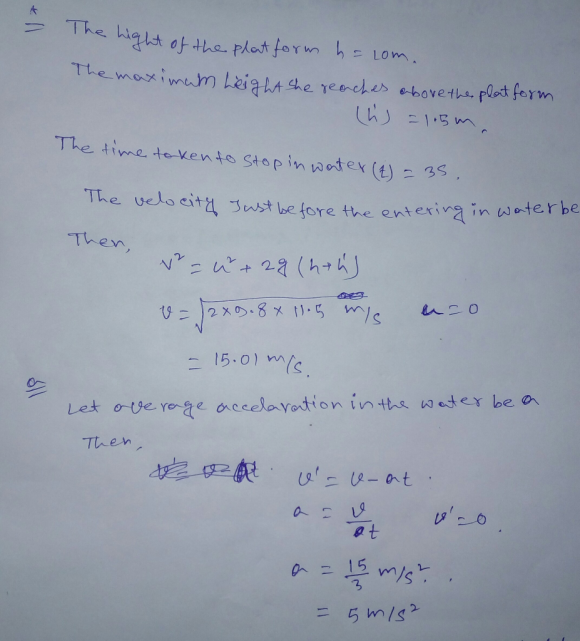 *
The hight of the platform h = 10m.
The maximum height she reaches above the platform
(h') = 1.5m.
The time taken to stop in water (t) = 3s.
The velocity Just before the entering in water be
Then,
v² = u² + 2g (h+h')
v = √2×9.8×11.5 m/s u=0
= 15.01 m/s.
a
Let average accelaration in the water be a
Then,
v' = v-at.
a = v/t v'=0.
a = 15/3 m/s².
= 5 m/s²